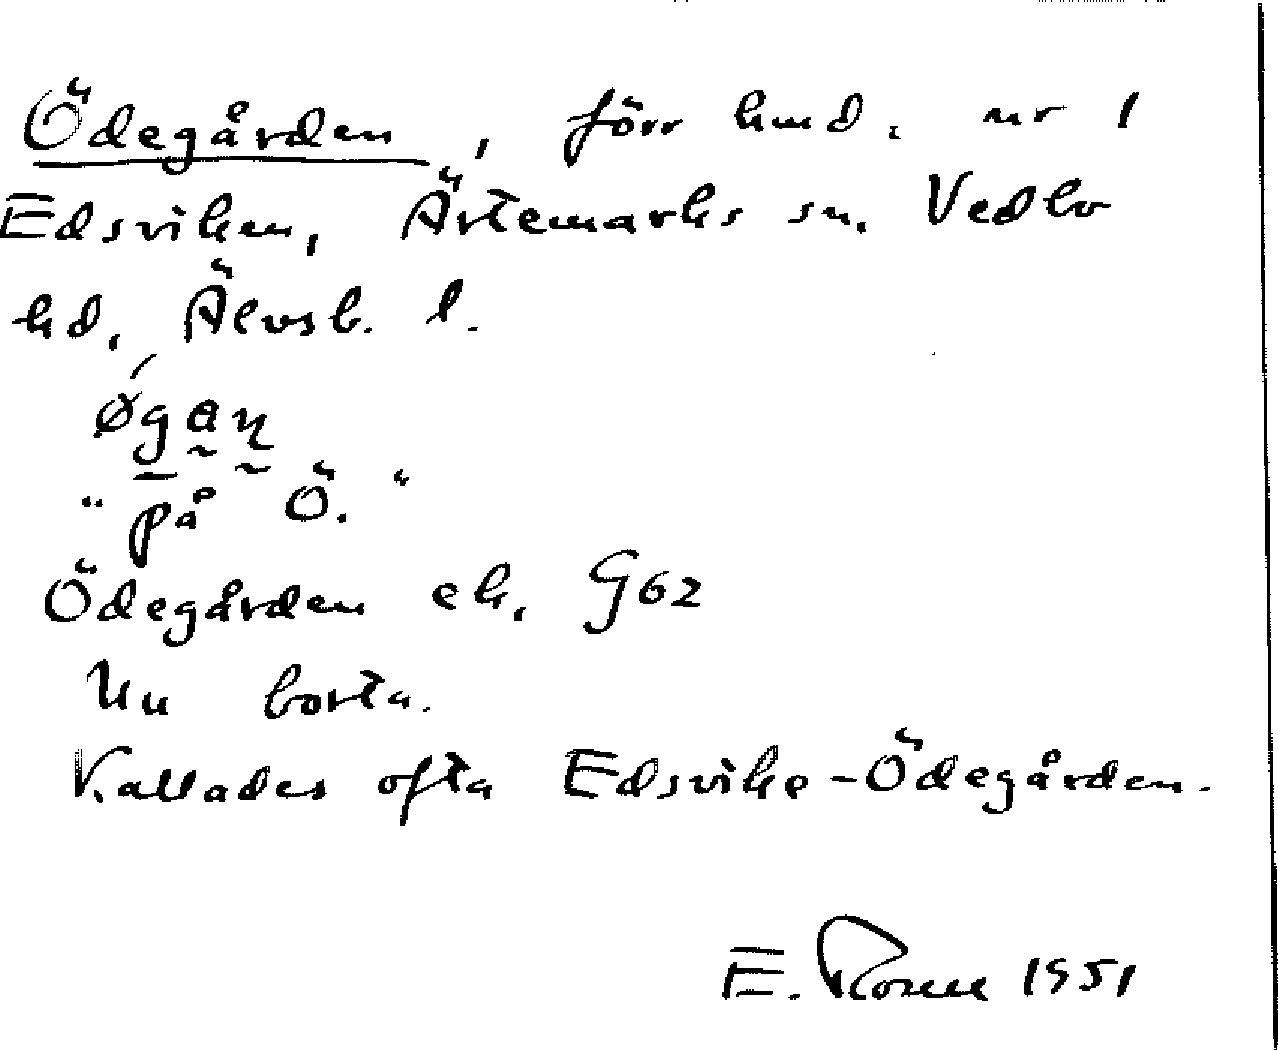 Ödegården, förr hmd. nr 1
Edsviken, Ärtemarks sn. Vedbo
hd, Älvsb. l.
øgan
"på Ö."
Ödegården ek. G62
Nu borta.
Kallades ofta Edsviks-Ödegården.
E. 1951